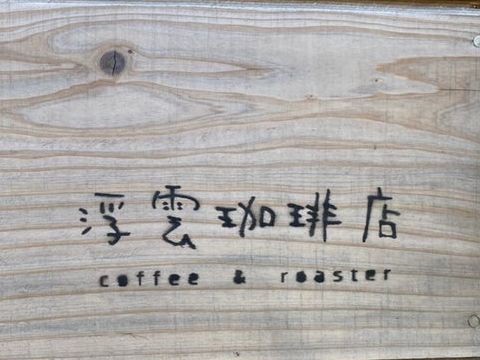 浮雲珈琲店
coffee & roaster